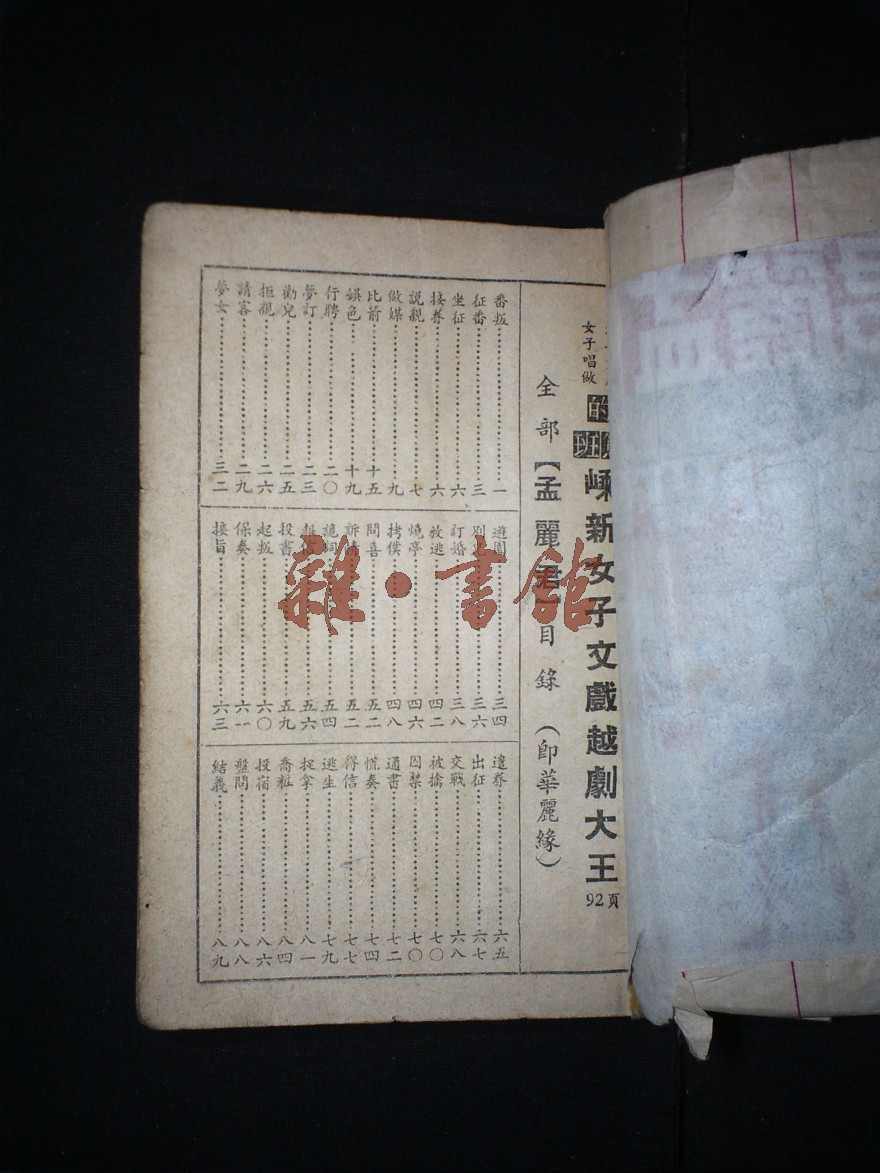 女子唱做
的
班
嵊新女子文戲越劇大王
92頁
全部【孟麗君】目錄(即華麗緣)
番叛 一
征番 三
坐征 六
接眷 六
説親 七
做媒 九
比箭 十五
娛色 十九
行聘 二〇
夢訂 二三
勸兒 二五
拒親 二六
請客 二九
夢女 三二
遊園 三四
三六
訂婚 三八
放逃 四二
燒亭 四六
拷僕 四八
問喜 五二
訴情 五二
詭詞 五四
五六
投書 五九
起叛 六〇
保奏 六一
接旨 六三
遠眷 六五
出征 六七
交戰 六八
被擒 七〇
囚禁 七〇
通書 七二
慌奏 七四
得信 七七
逃生 七九
捉拿 八一
喬粧 八四
投宿 八六
盤問 八八
結義 八九
雜·書館